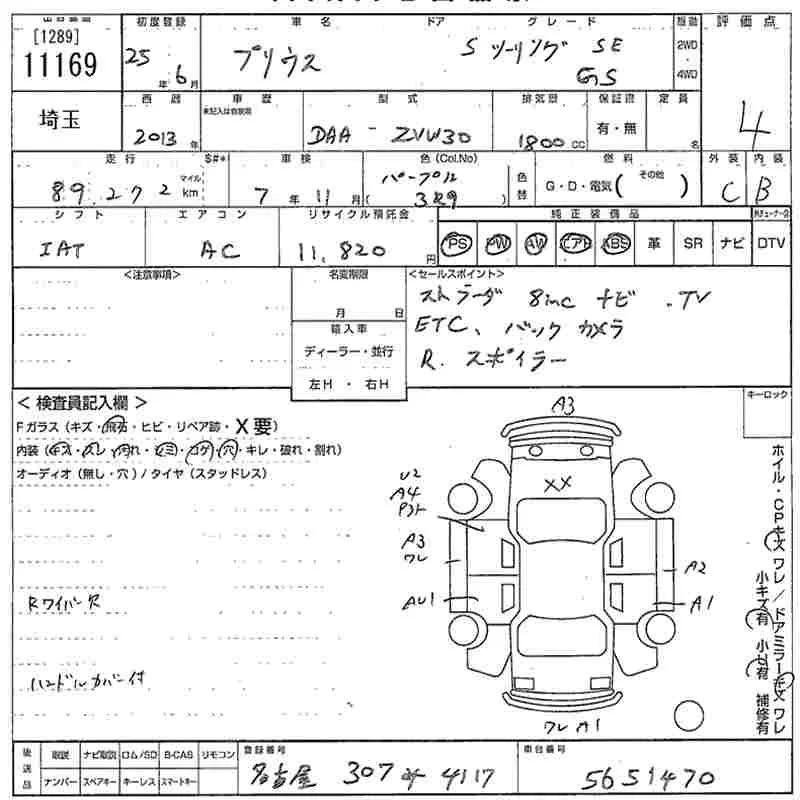 [1289]
11169
埼玉
初度登録
25年 6月
車名
プリウス
ドア
グレード
S ツーリング SE
GS
駆動
2WD
4WD
評価点
4
西暦
2013年
車歴
※記入は自家用
型式
DAA - ZVW30
排気量
1800cc
保証書
有・無
定員
名
走行
S#*
89,272
マイル
km
車検
7年 11月
色 (Col.No)
パープル
( 3R9 )
色替
燃料
G・D・電気( その他 )
外装
C
内装
B
シフト
IAT
エアコン
AC
リサイクル預託金
11,820円
純正装備品
PS PW AW エアB ABS 革 SR ナビ DTV
<注意事項>
名変期限
月 日
輸入車
ディーラー・並行
左H ・ 右H
<セールスポイント>
ストラーダ 8inc ナビ .TV
ETC、バックカメラ
R. スポイラー
< 検査員記入欄 >
Fガラス (キズ・飛石・ヒビ・リペア跡・X要)
内装 (キズ・スレ・汚れ・シミ・コゲ・穴・キレ・破れ・割れ)
オーディオ (無し・穴) / タイヤ (スタッドレス)
Rワイパー欠
ハンドルカバー付
キーロック
A3
XX
U2
A4
A3
ワレ
AU1
A2
A1
ワレ A1
ホイル・CPキズ ワレ / ドアミラーキズ ワレ
小キズ有 小凹有 補修有
後送品
取説 ナビ取説 ロム/SD B-CAS リモコン
ナンバー スペアキー キーレス スマートキー
登録番号
名古屋 307 4117
車台番号
5651470